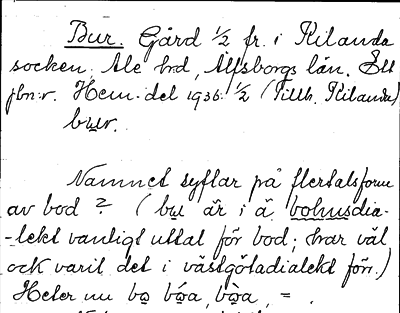 Bur. Gård 1/2 fr. i Kilanda
socken, Ale hrd, Älfsborgs län. Ett
jbn:r. Hem. del 1936: 1/2 (Tillh. Kilanda)
bu̱r.
Namnet syftar på flertalsform
av bod ? (bu̱ är i ä. bohusdia-
-lekt vanligt uttal för bod; har väl
ock varit det i västgötadialekt förr.)
Heter nu